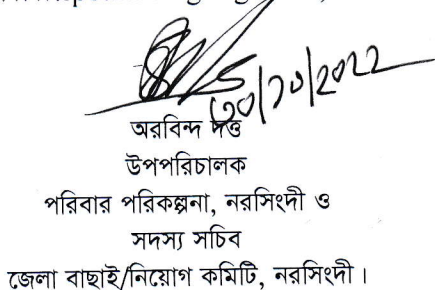 ৩০/১০/২০২২
অরবিন্দ দত্ত
উপপরিচালক
পরিবার পরিকল্পনা, নরসিংদী ও
সদস্য সচিব
জেলা বাছাই/নিয়োগ কমিটি, নরসিংদী।